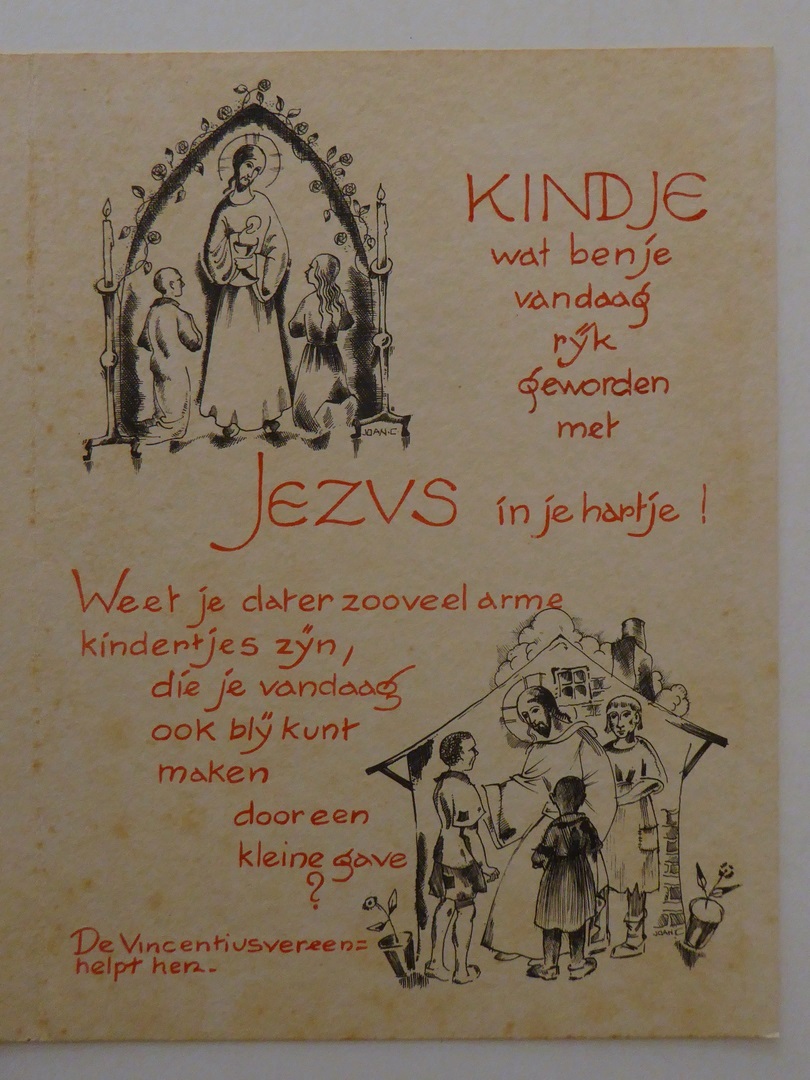 KINDJE
wat ben je
vandaag
rÿk
geworden
met
JEZVS in je hartje !
JOAN.C
Weet je dat er zooveel arme
kindertjes zÿn,
die je vandaag
ook blÿ kunt
maken
door een
kleine gave
?
De Vincentiusvereen=
helpt hen.
JOAN.C